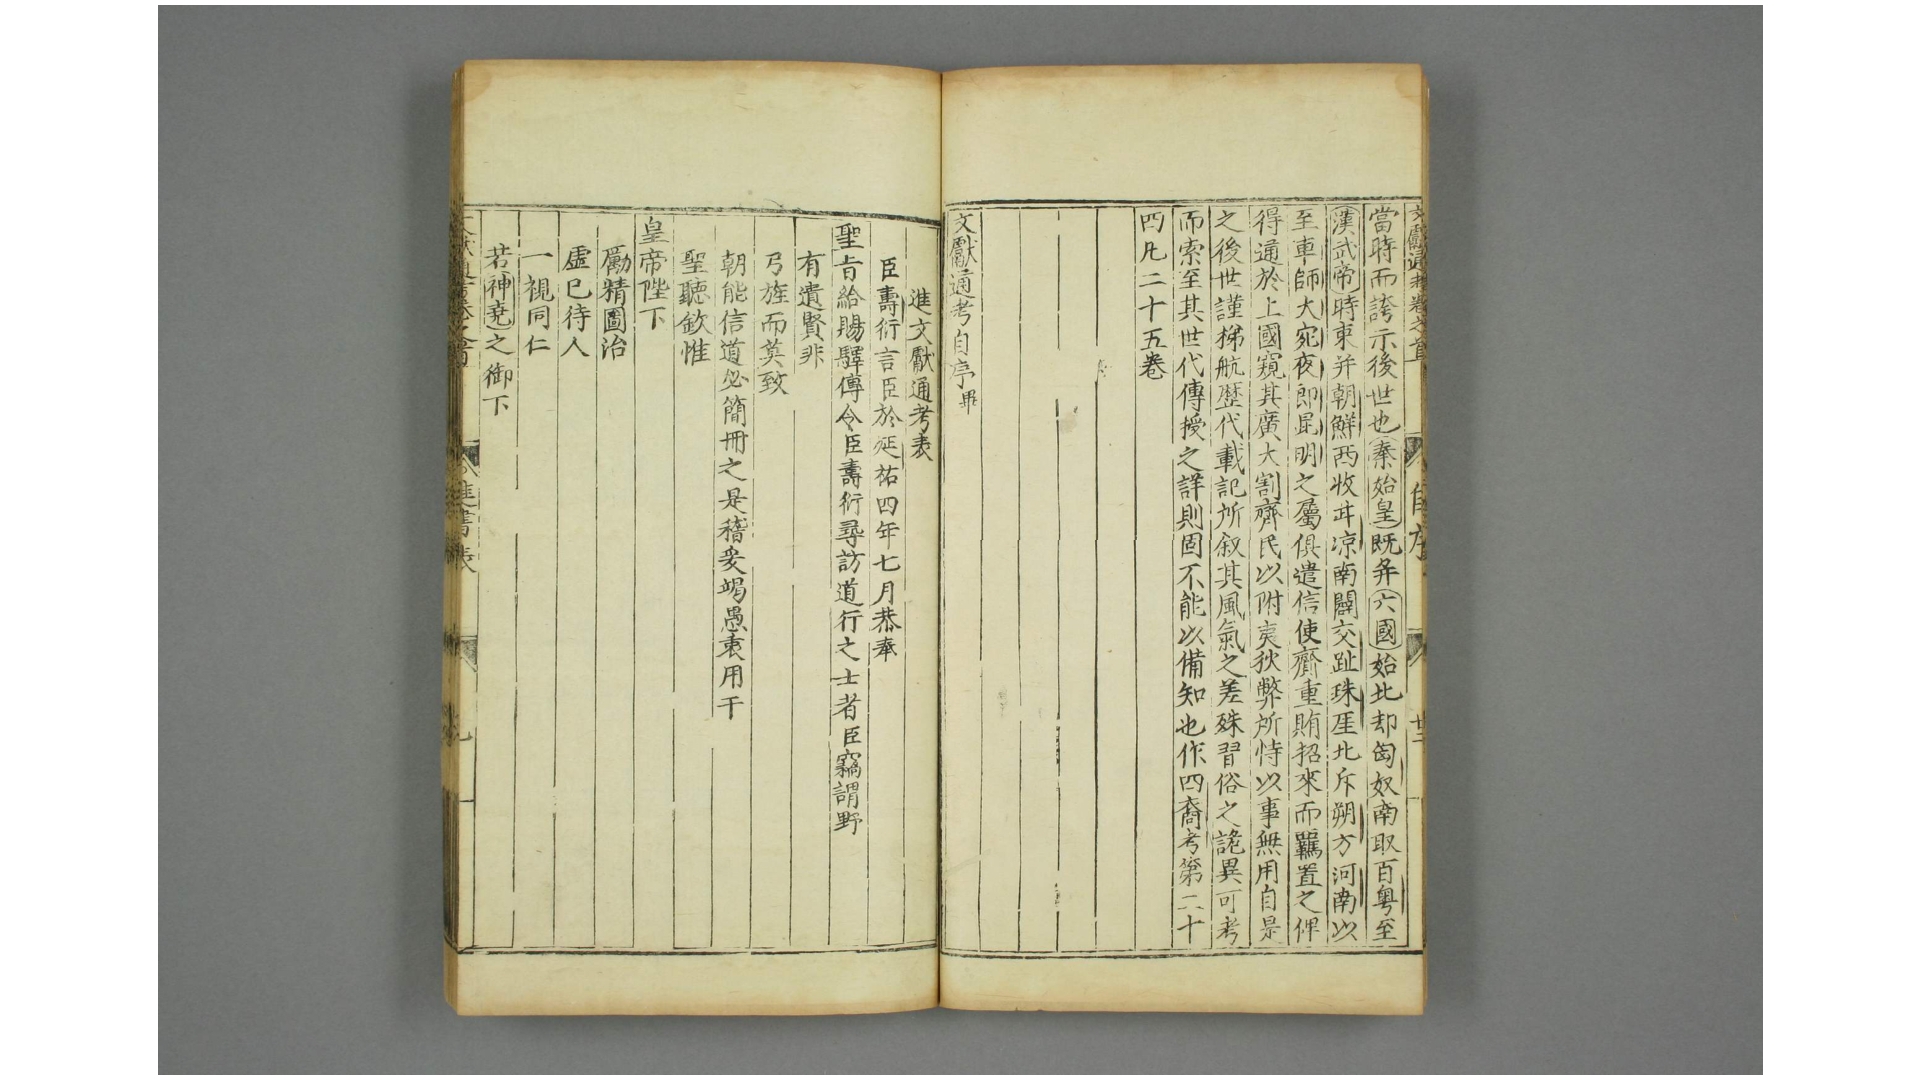 文獻通考卷之首
自序
廿二
當時而誇示後世也秦始皇既并六國始北却匈奴南取百粵至
漢武帝時東并朝鮮西收幷凉南闢交趾珠厓北斥朔方河南以
至車師大宛夜郎昆明之屬俱遣信使齎重賄招來而羈置之俾
得通於上國窺其廣大割齊民以附夷狄弊所恃以事無用自是
之後世謹梯航歷代載記所叙其風氣之差殊習俗之詭異可考
而索至其世代傳授之詳則固不能以備知也作四裔考第二十
四凡二十五卷
文獻通考自序畢
進文獻通考表
臣壽衍言臣於延祐四年七月恭奉
聖旨給賜驛傳令臣壽衍尋訪道行之士者臣竊謂野
有遺賢非
弓旌而莫致
朝能信道必簡冊之是稽爰竭愚衷用干
聖聽欽惟
皇帝陛下
勵精圖治
虛己待人
一視同仁
若神堯之御下
進書表